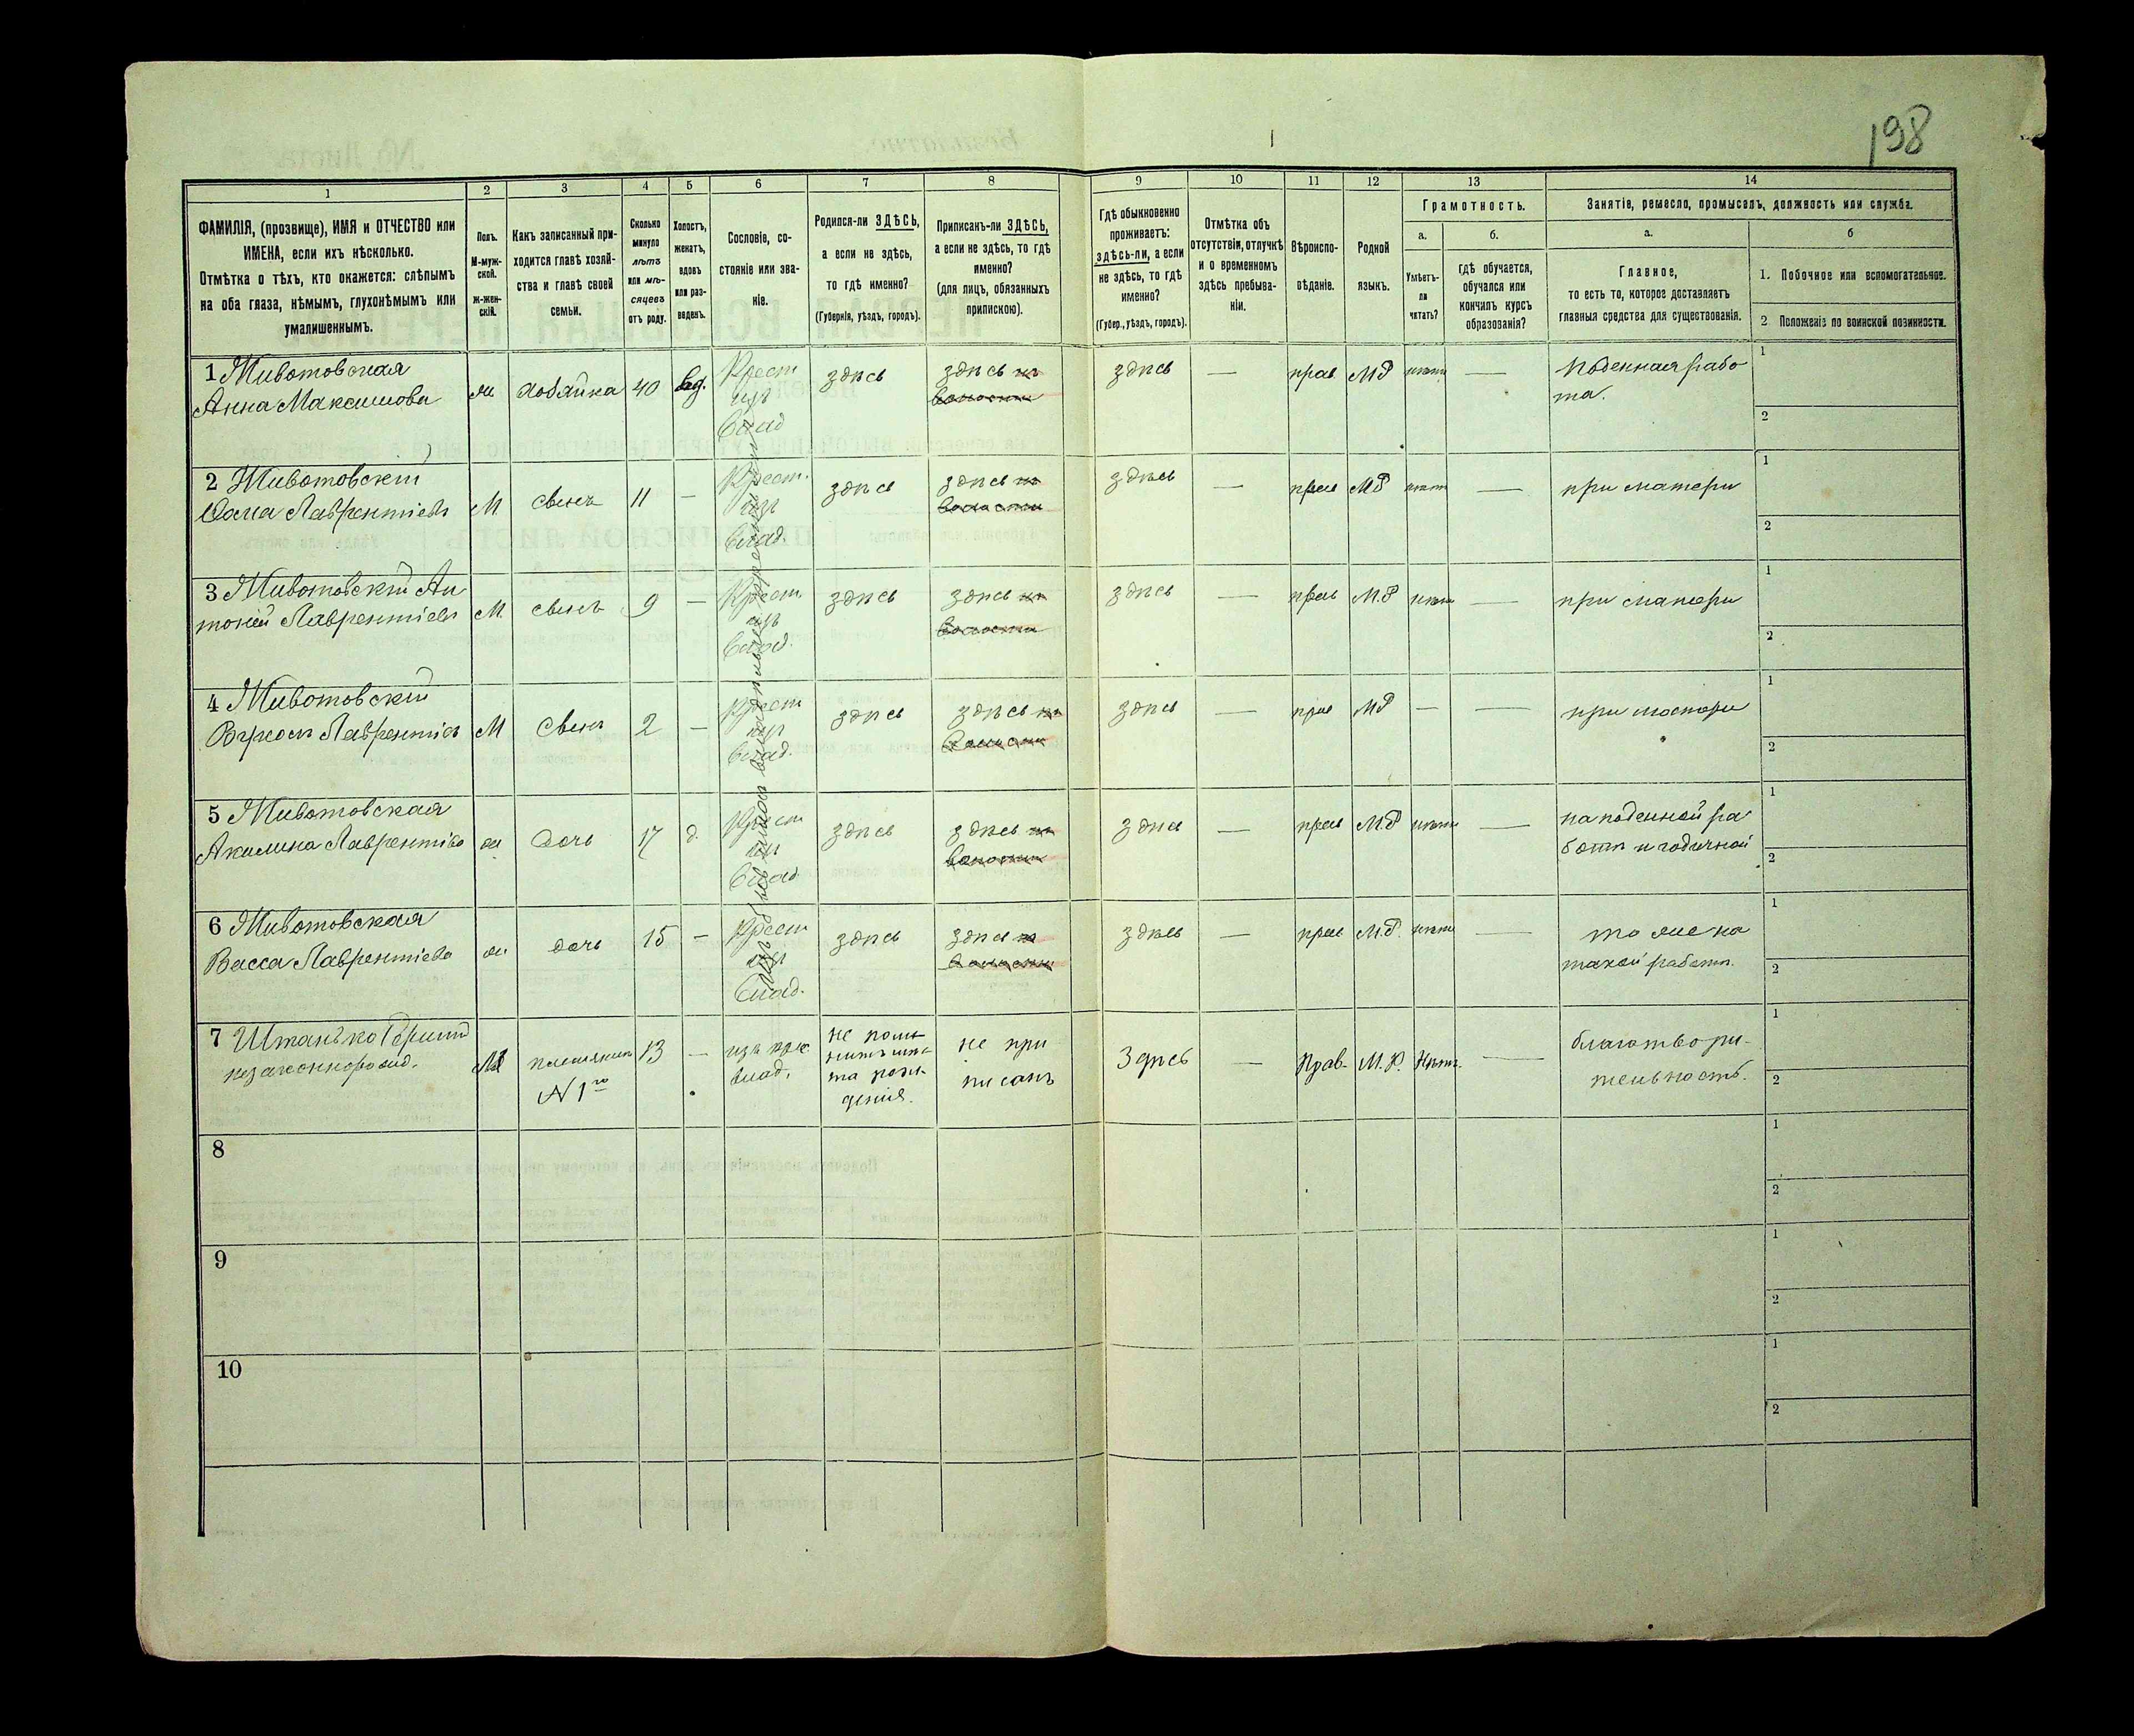 198
1
2
3
4
5
6
7
8
9
10
11
12
13
14
ФАМИЛІЯ, (прозвище), ИМЯ и ОТЧЕСТВО или
ИМЕНА, если ихъ нѣсколько.
Отмѣтка о тѣхъ, кто окажется: слѣпымъ
на оба глаза, нѣмымъ, глухонѣмымъ или
умалишеннымъ.
Полъ.
М-муж-
ской.
ж-жен-
скій.
Какъ записанный при-
ходится главѣ хозяй-
ства и главѣ своей
семьи.
Сколько
минуло
лѣтъ
или мѣ-
сяцевъ
отъ роду.
Холостъ,
женатъ,
вдовъ
или раз-
веденъ.
Сословіе, со-
стояніе или зва-
ніе.
Родился-ли ЗДѢСЬ,
а если не здѣсь,
то гдѣ именно?
(Губернія, уѣздъ, городъ).
Приписанъ-ли ЗДѢСЬ,
а если не здѣсь, то гдѣ
именно?
(для лицъ, обязанныхъ
припискою).
Гдѣ обыкновенно
проживаетъ:
здѣсь-ли, а если
не здѣсь, то гдѣ
именно?
(Губер., уѣздъ, городъ).
Отмѣтка объ
отсутствіи, отлучкѣ
и о временномъ
здѣсь пребыва-
ніи.
Вѣроиспо-
вѣданіе.
Родной
языкъ.
Грамотность.
а.
Умѣетъ-
ли
читать?
б.
Гдѣ обучается,
обучался или
кончилъ курсъ
образованія?
Занятіе, ремесло, промыселъ, должность или служба.
а.
Главное,
то есть то, которое доставляетъ
главныя средства для существованія.
б
1. Побочное или вспомогательное.
2 Положеніе по воинской повинности.
1 Животовская
Анна Максимова
ж
хозяйка
40
вд.
Крест
изъ
влад
здѣсь
здѣсь
здѣсь
—
прав
МР
нѣтъ
—
Поденная рабо
та.
1
2
2 Животовскій
Лаврентіевъ
М.
сынъ
11
—
Крест.
изъ
влад.
здѣсь
здѣсь
здѣсь
—
прав
МР
нѣтъ
—
при матери
1
2
3 Животовскій Ан
тоній Лаврентіевъ
М.
сынъ
9
—
Крест
изъ
влад.
здѣсь
здѣсь
здѣсь
—
прав
М.Р
нѣтъ
—
при матери
1
2
4 Животовскій
Лаврентіев
М
Сынъ
2
—
Крест
изъ
влад.
здѣсь
здѣсь
здѣсь
—
прав
МР
—
—
при матери
1
2
5 Животовская
Акилина Лаврентіева
ж
Дочь
17
д.
Крест
изъ
влад
здѣсь
здѣсь
здѣсь
—
прав
М.Р
нѣтъ
—
на поденной ра
ботѣ и годичной
1
2
6 Животовская
Васса Лаврентіева
ж
дочь
15
—
Крест
изъ
влад.
здѣсь
здѣсь
здѣсь
—
прав
М.Р.
нѣтъ
—
то же на
такой работѣ.
1
2
7 Штанько
незаконорожд.
М
племянникъ
N 1го
13
—
изъ крес
влад.
не пом-
нитъ мѣс-
та рож-
денія.
не при
писанъ
Здѣсь
—
Прав.
М.Р.
Нѣтъ.
—
благотвори-
тельность.
1
2
8
1
2
9
1
2
10
1
2